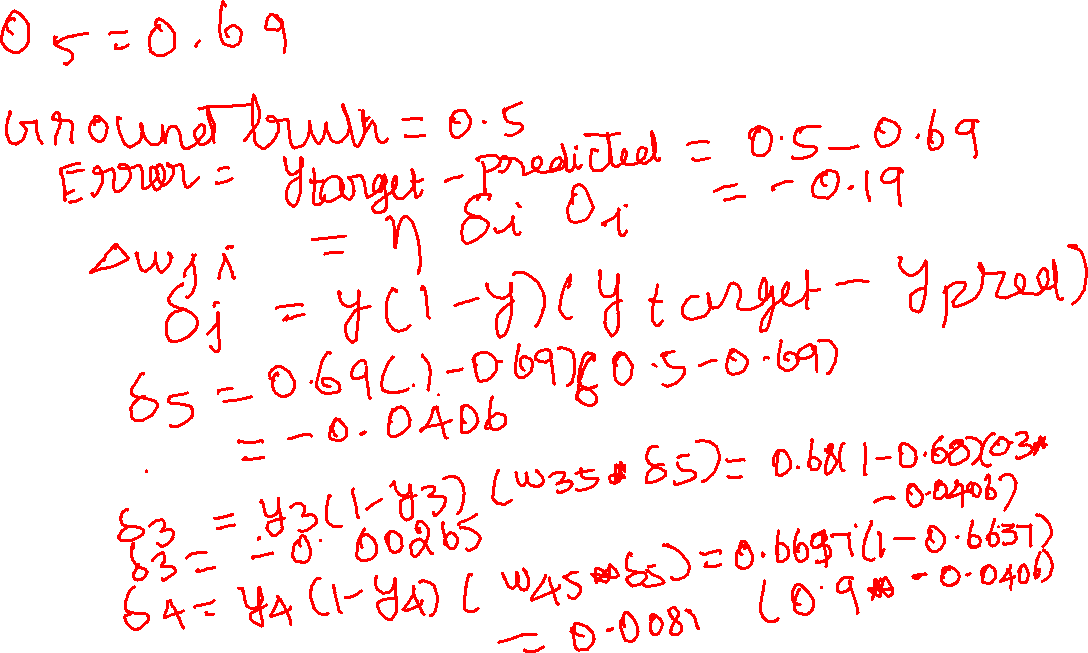 O5 = 0.69
Ground truth = 0.5
Error = ytarget - predicted = 0.5 - 0.69
= -0.19
Δwji = η δi Oi
δj = y(1-y)(ytarget - ypred)
δ5 = 0.69(1-0.69)(0.5-0.69)
= -0.0406
δ3 = y3(1-y3) (w35 * δ5) = 0.68(1-0.68)(0.3*
-0.0406)
δ3 = -0.00265
δ4 = y4(1-y4) (w45 * δ5) = 0.6637(1-0.6637)
(0.9 * -0.0406)
= 0.0081